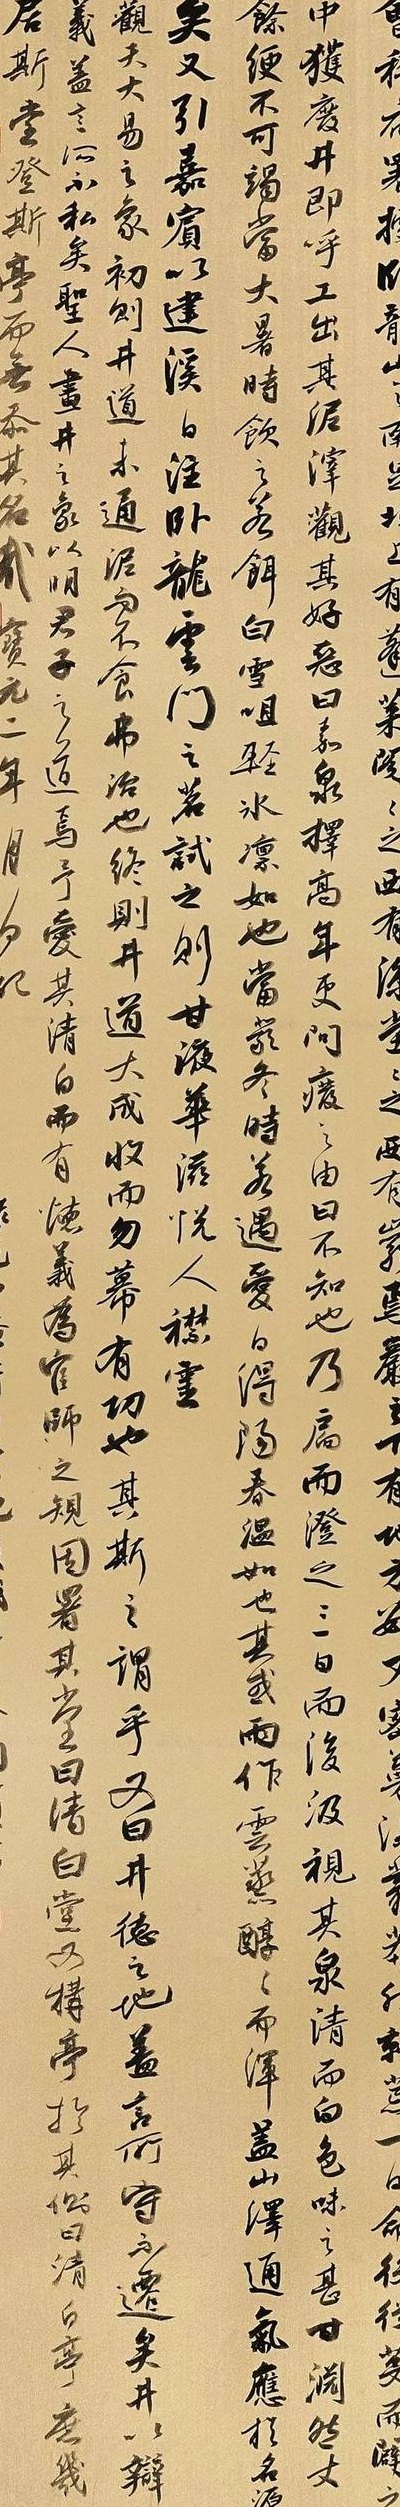 會稽府署據卧龍山之南足北上有蓬萊閣閣之西有涼堂堂之西有巖焉巖之下有地方數丈密蔓深叢莽然就荒一日命役徒芟而闢之
中獲廢井即呼工出其泥滓觀其好惡曰嘉泉擇高年吏問廢之由曰不知也乃扃而澄之三日而後汲視其泉清而白色味之甚甘淵然丈
餘綆不可竭當大暑時飲之若餌白雪咀輕冰凛如也當嚴冬時若遇愛日得陽春温如也其或雨作雲蒸醇醇而渾蓋山澤通氣應於名源
矣又引嘉賓以建溪日注卧龍雲門之茗試之則甘液華滋悦人襟靈
觀夫大易之象初則井道未通泥而不食弗治也終則井道大成收而勿幕有功也其斯之謂乎又曰井德之地蓋言所守不遷矣井以辯
義蓋言所不私矣聖人畫井之象以明君子之道焉予愛其清白而有德義為官師之規因署其堂曰清白堂又構亭於其側曰清白亭庶幾
居斯堂登斯亭而無忝其名哉寶元二年月日記